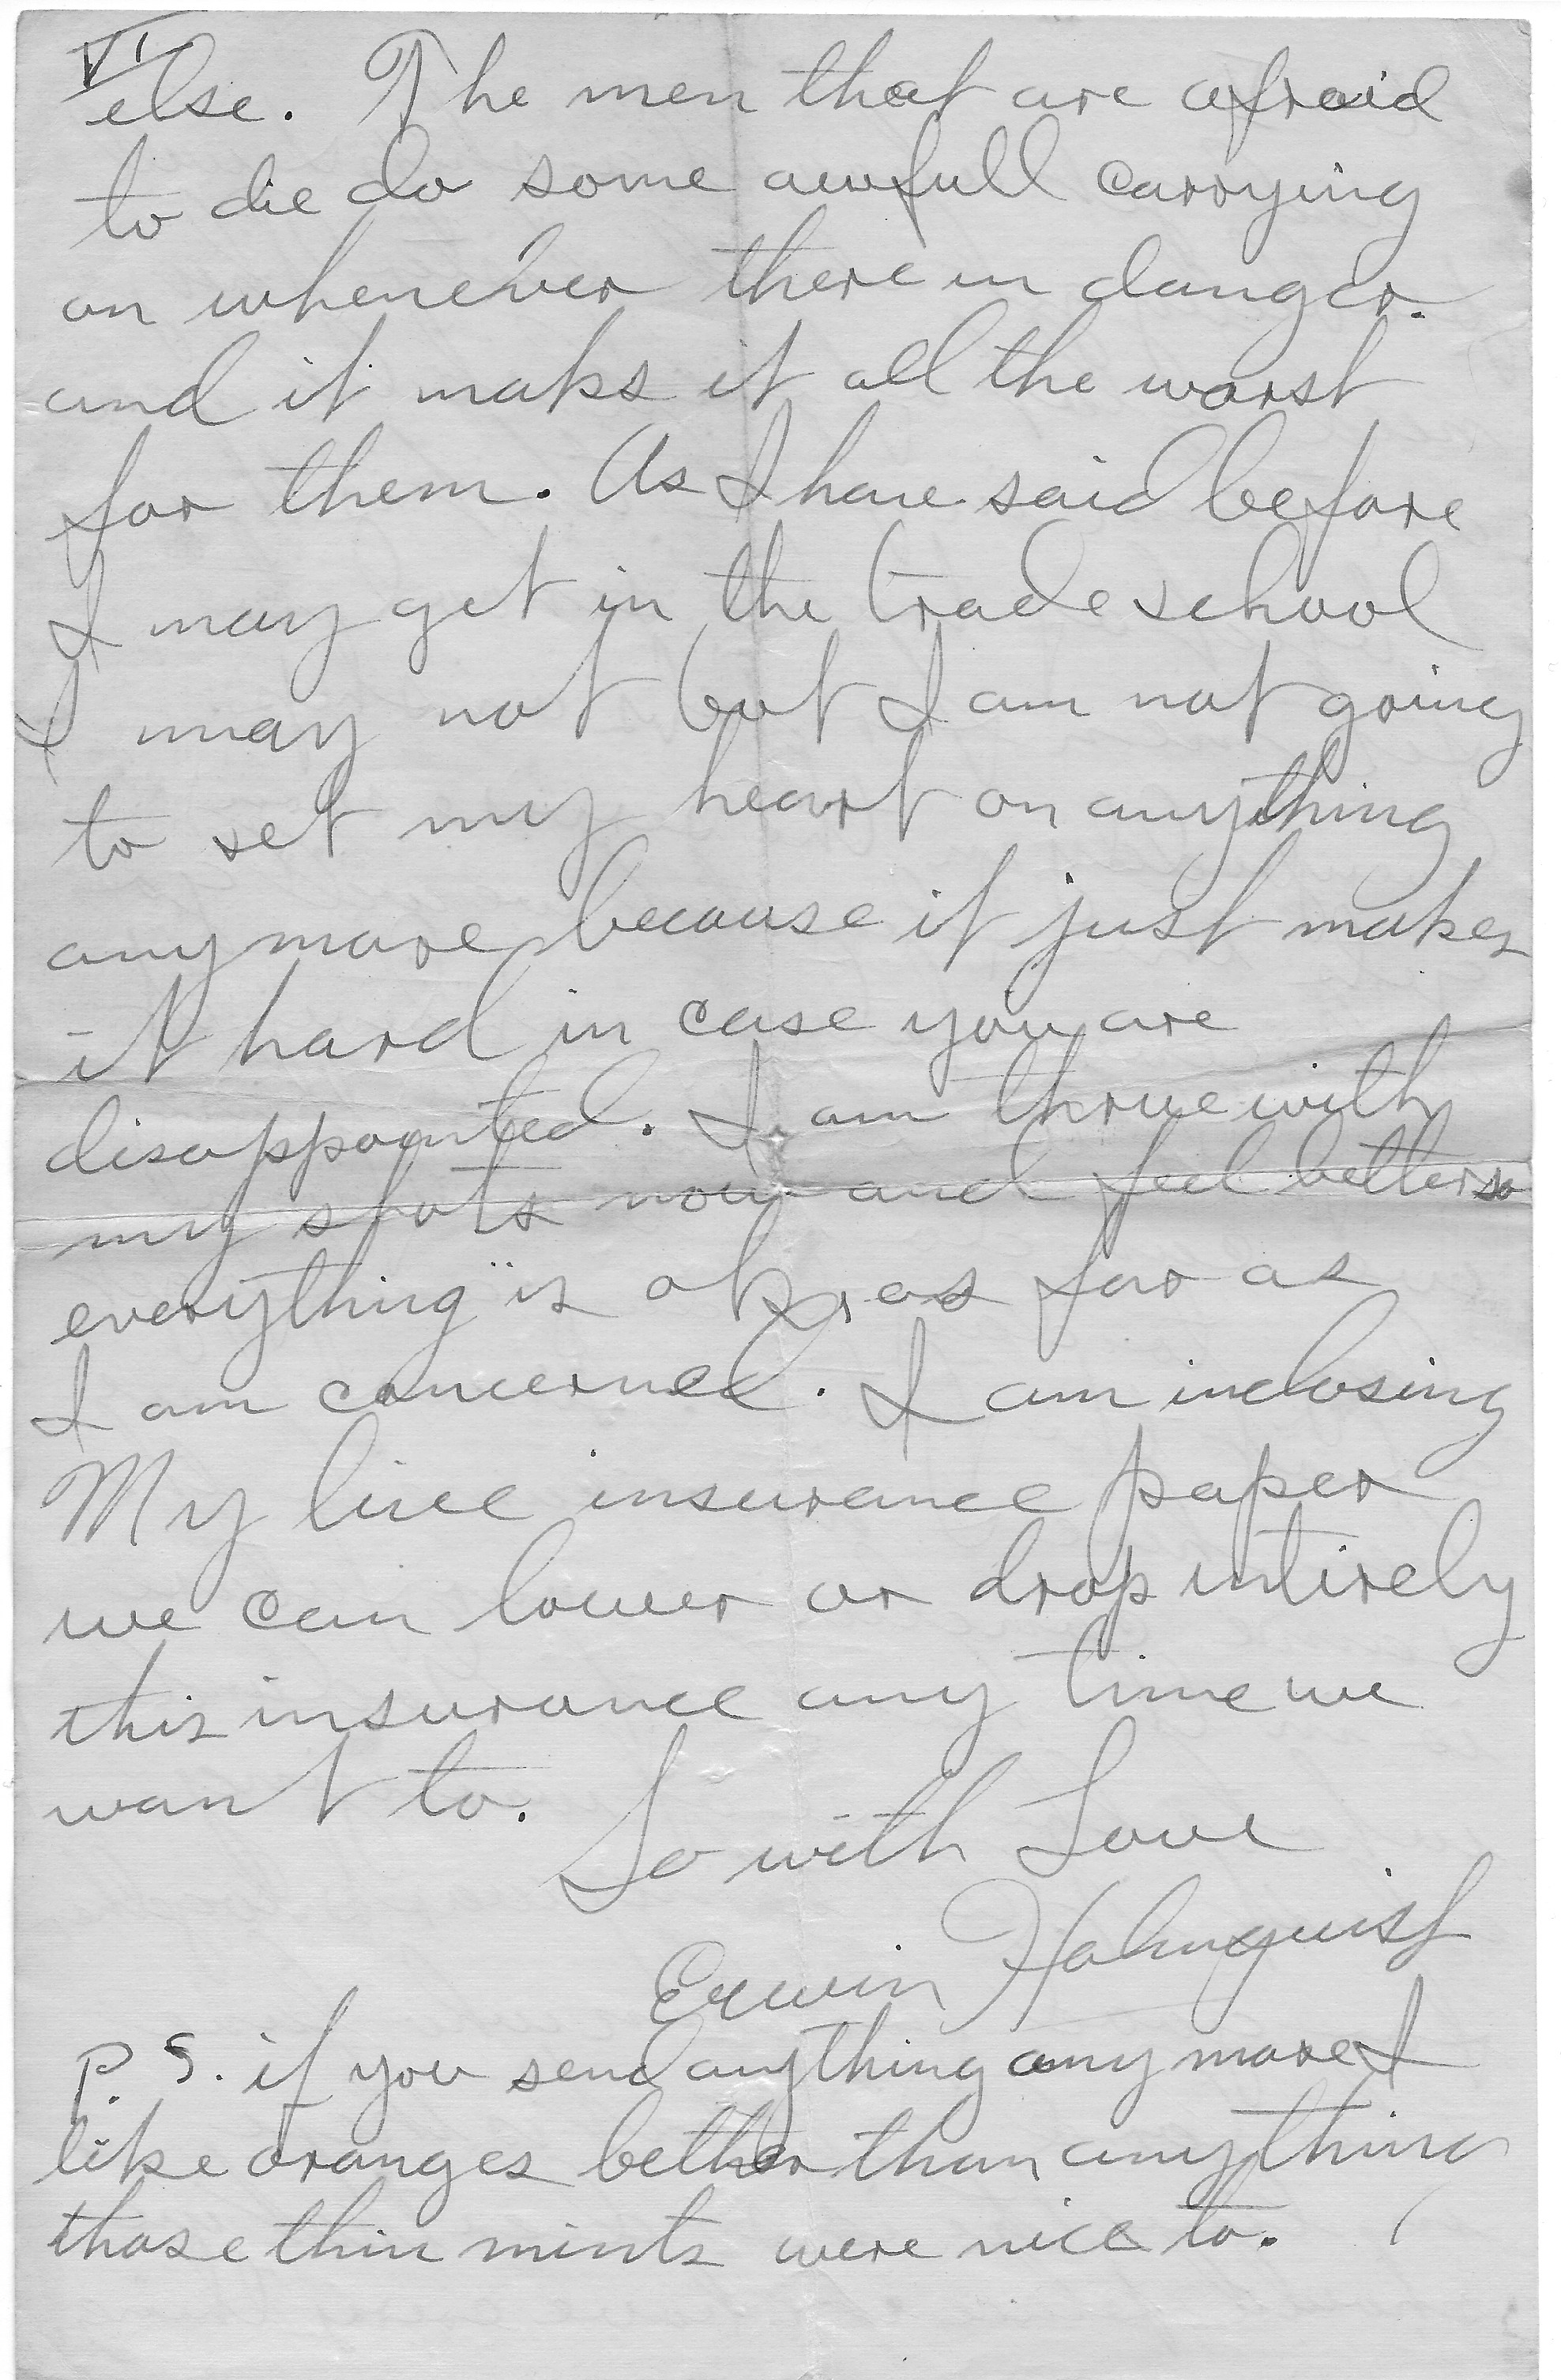 VI
else. The men that are afraid
to die do some awfull carrying
on whenever there in danger.
and it maks it all the worst
for them. As I have said before
I may get in the trade school
I may not but I am not going
to set my heart on anything
anymore because it just makes
it hard in case you are
disappointed. I am thrue with
my shots now and feel better so
everything is ok, as far as
I am concerned. I am inclosing
My live insurance paper
we can lower or drop intirely
this insurance any time we
want to.
So with Love
Erwin Holmquist
P.S. if you send anything any more I
like oranges better than anything
those thin mints were nice to.